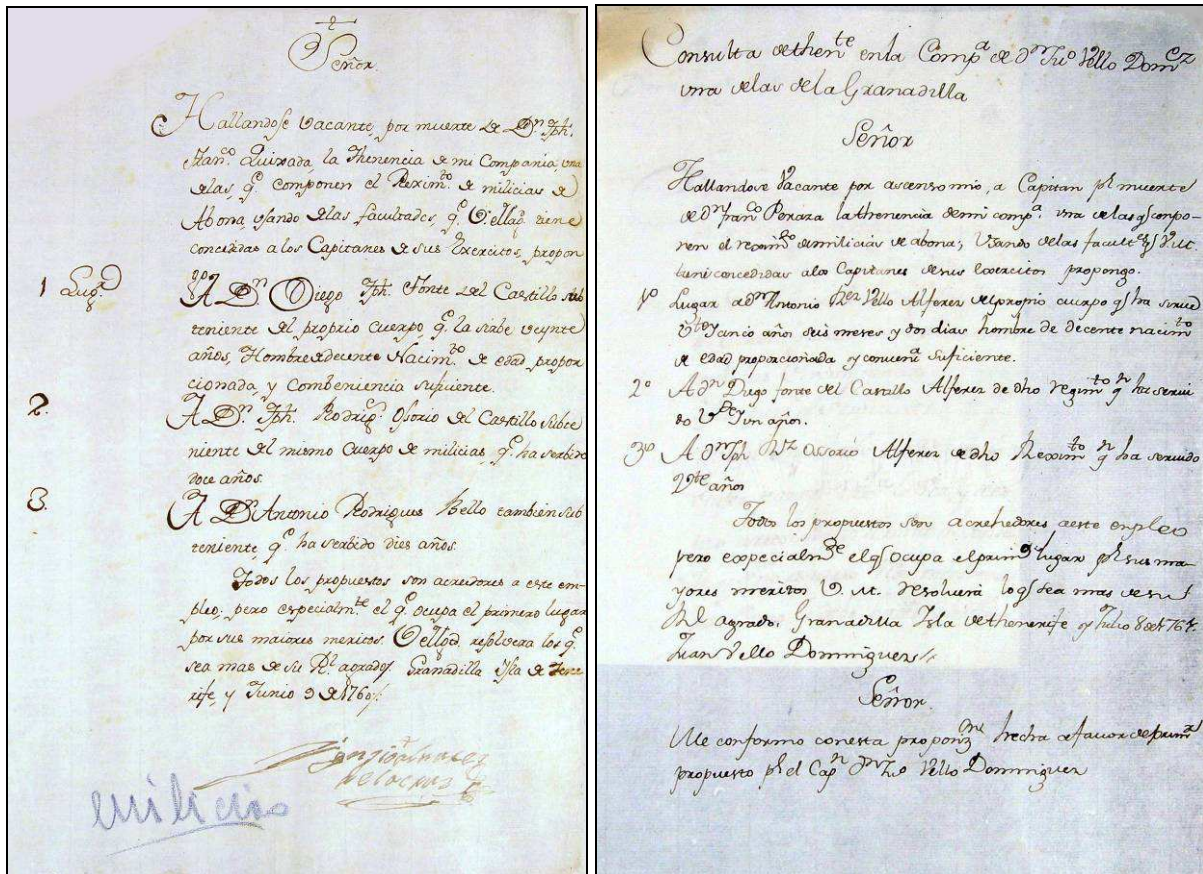 Señor
Hallandose vacante, por muerte de Dn. Jph.
Franco. Quixada, la Thenencia de mi Compania, una
delas, qe. componen el Reximto. de milicias de
Abona, usando delas facultades qe. V. tiene
concedidas a los Capitanes de sus Exercitos, propon
go
1 Lugar A Dn. Diego Jph. Fonte del Castillo sub
teniente del proprio cuerpo qe. la sirbe veynte
años, Hombre de decente Nacimto. de edad propor
cionada, y Combeniencia sufisiente.
2. A Dn. Jph. Rodrigz. Osorio del Castillo Subte
niente del mismo Cuerpo de milicias, qe. ha serbido
doce años.
3. A Dn. Antonio Rodrigues Bello tambien sub
teniente, qe. ha serbido dies años.
Todos los propuestos son acreidores a este em
pleo; pero especialmte. el qe. ocupa el primero lugar
por sus maiores meritos. resolvera los qe.
sea mas de su Rl. agrado Granadilla Ysla de Tene
rife, y Junio 9 de 1760
milicias
Consulta de thente en la Compa de Dn Juo Vello Domcz
una de las de la Granadilla
Señor
Hallandose Vacante por ascenso mio, a Capitan pr muerte
de Dn Franco Peraza la thenencia de mi compa. una de las q conpo-
nen el reximto de milicias de abona; Usando de las facultes q V. M.
tiene concedidas a los Capitanes de sus Exercitos propongo.
1º Lugar a Dn Antonio Vello Alferez del propio cuerpo q ha servido
Vte y cinco años seis meses y dos dias hombre de decente nacimto
de edad proporcionada y convena Suficiente.
2º A Dn Diego fonte del Castillo Alferez de dho regimto q ha servi
do Vte y un años.
3º A Dn Jph Rz Ossorio Alferez de dho Reximto q ha servido
Vte años
Todos los propuestos son acrehedores a este enpleo
pero expecialmte el q ocupa el primo lugar pr sus ma-
yores meritos V. M. resolverá lo q sea mas de su
Rl agrado. Granadilla Isla de thenerife y Julio 8 de 1767
Juan Vello Dominguez
Señor.
Me conformo con esta proponn hecha a favor de primr
propuesto pr el Capn Dn Juo Vello Dominguez